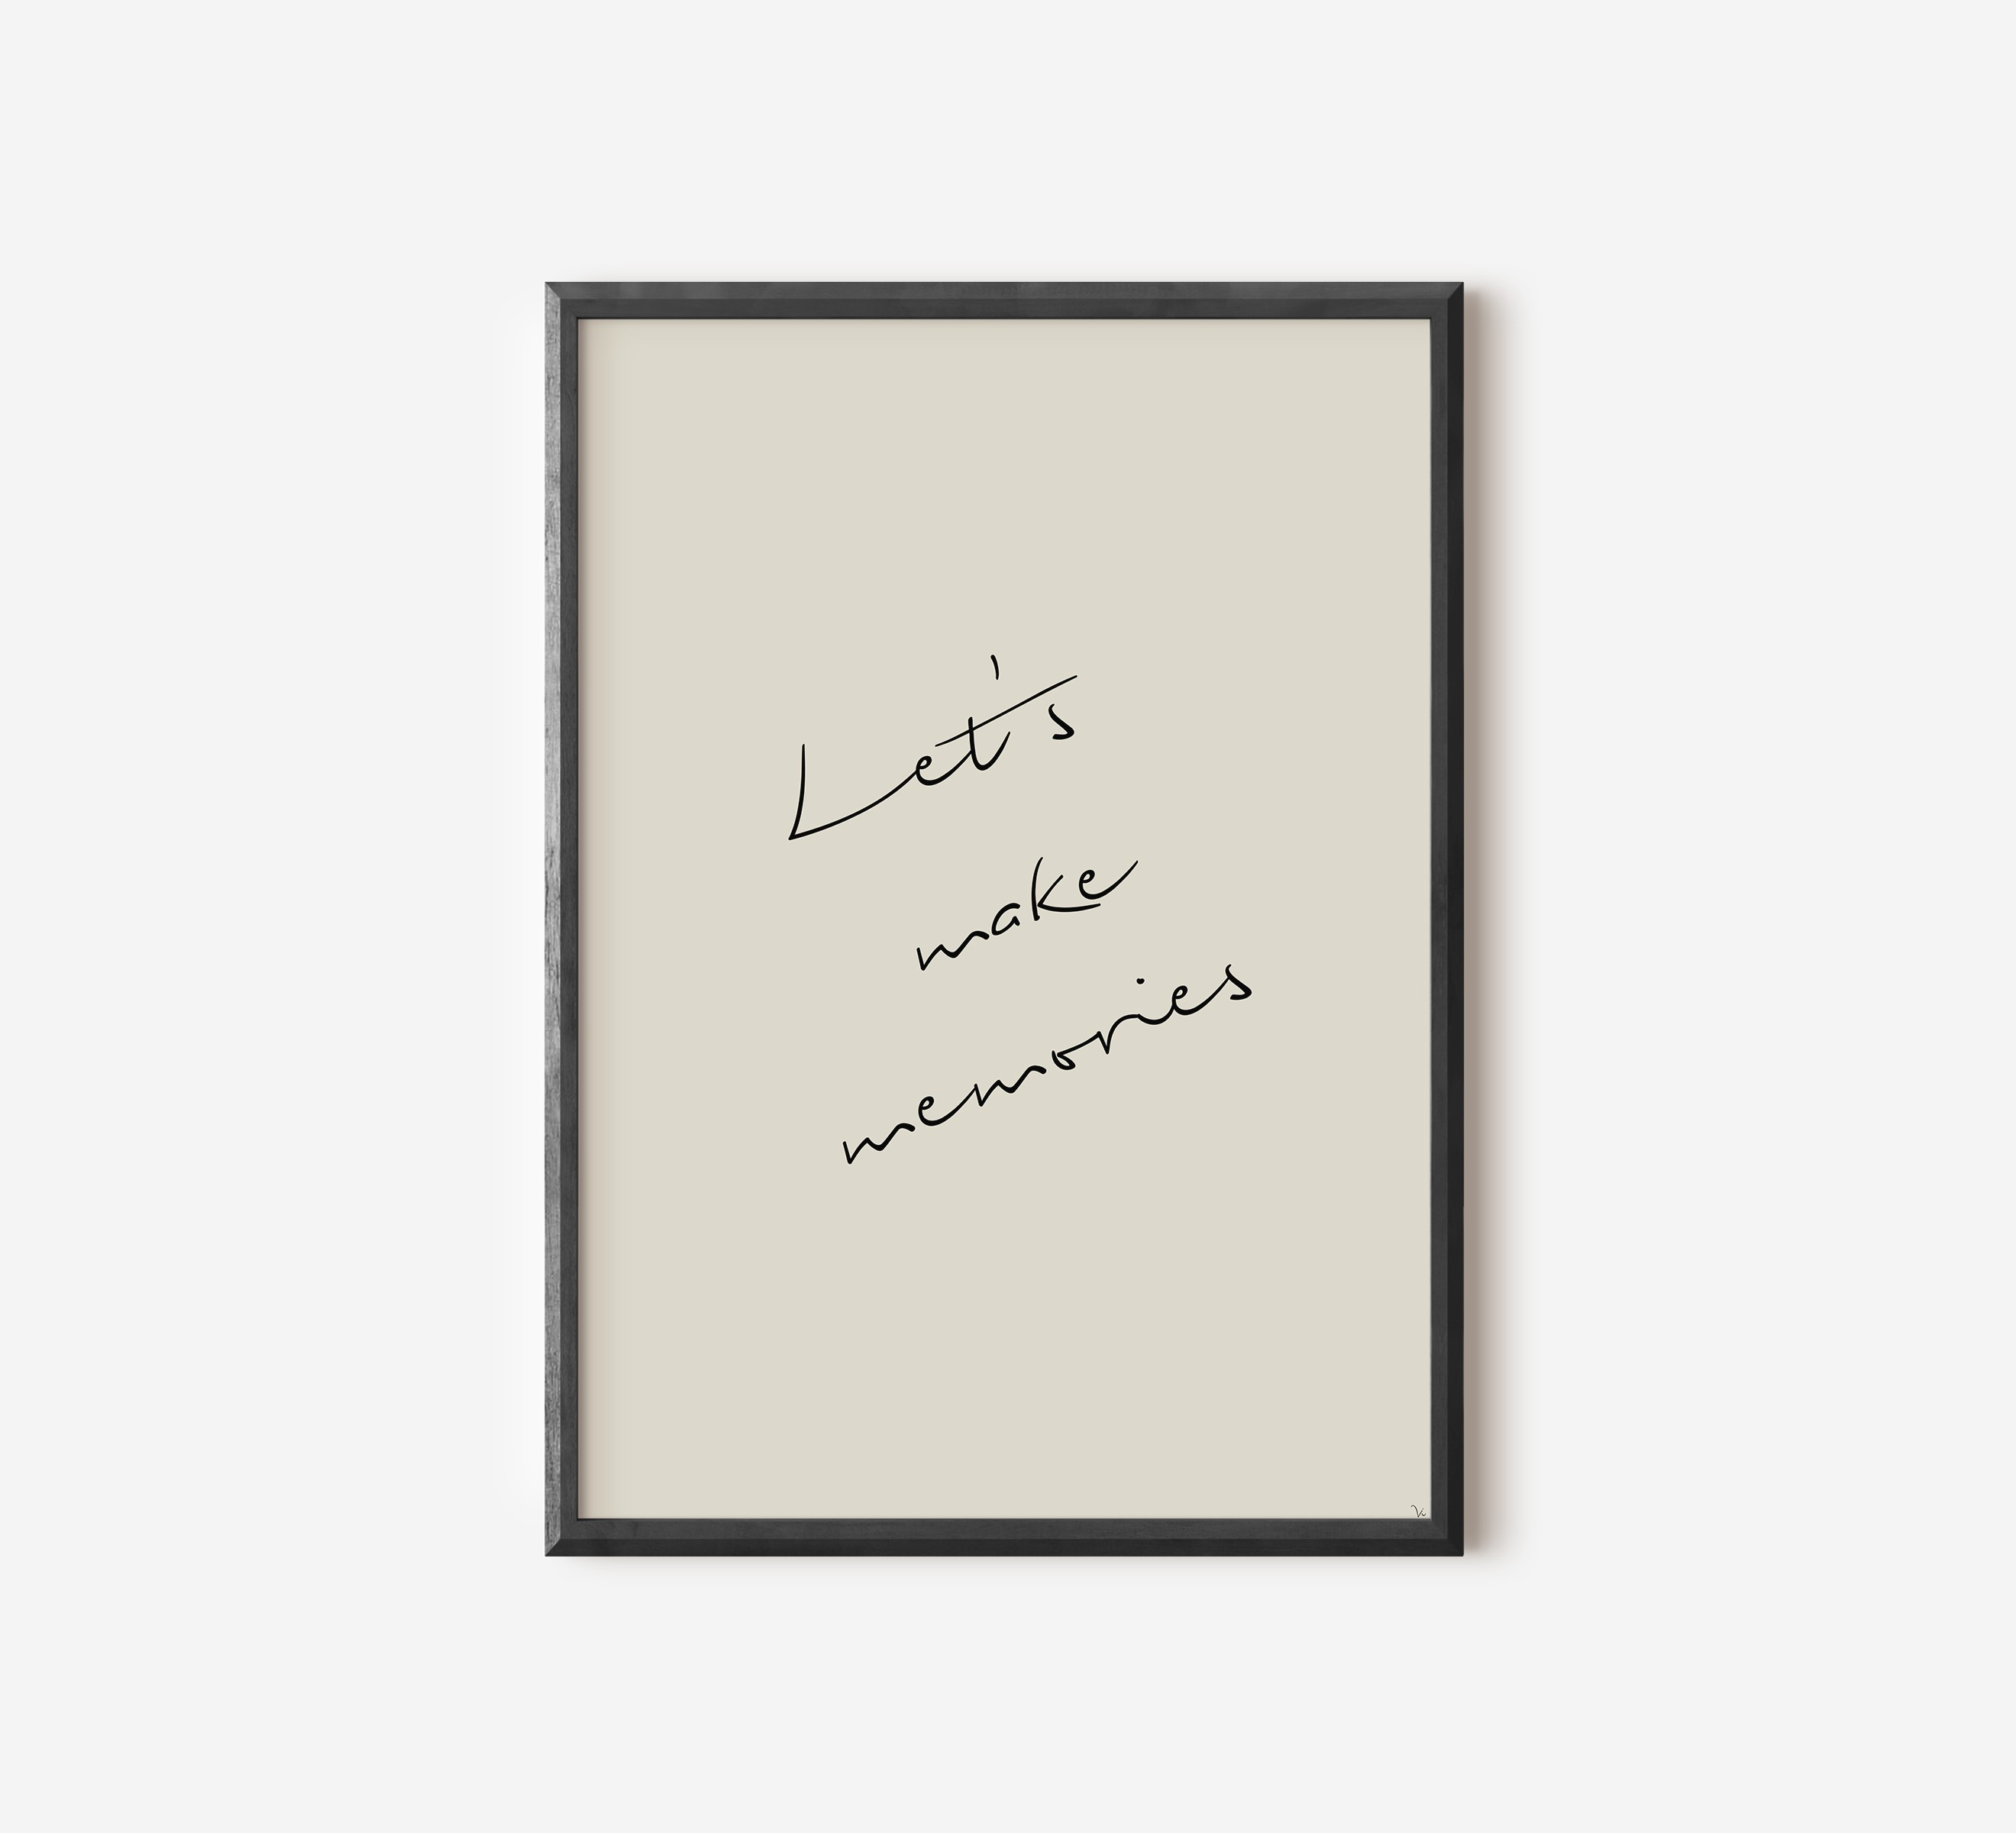 Let's
make
memories
Vi